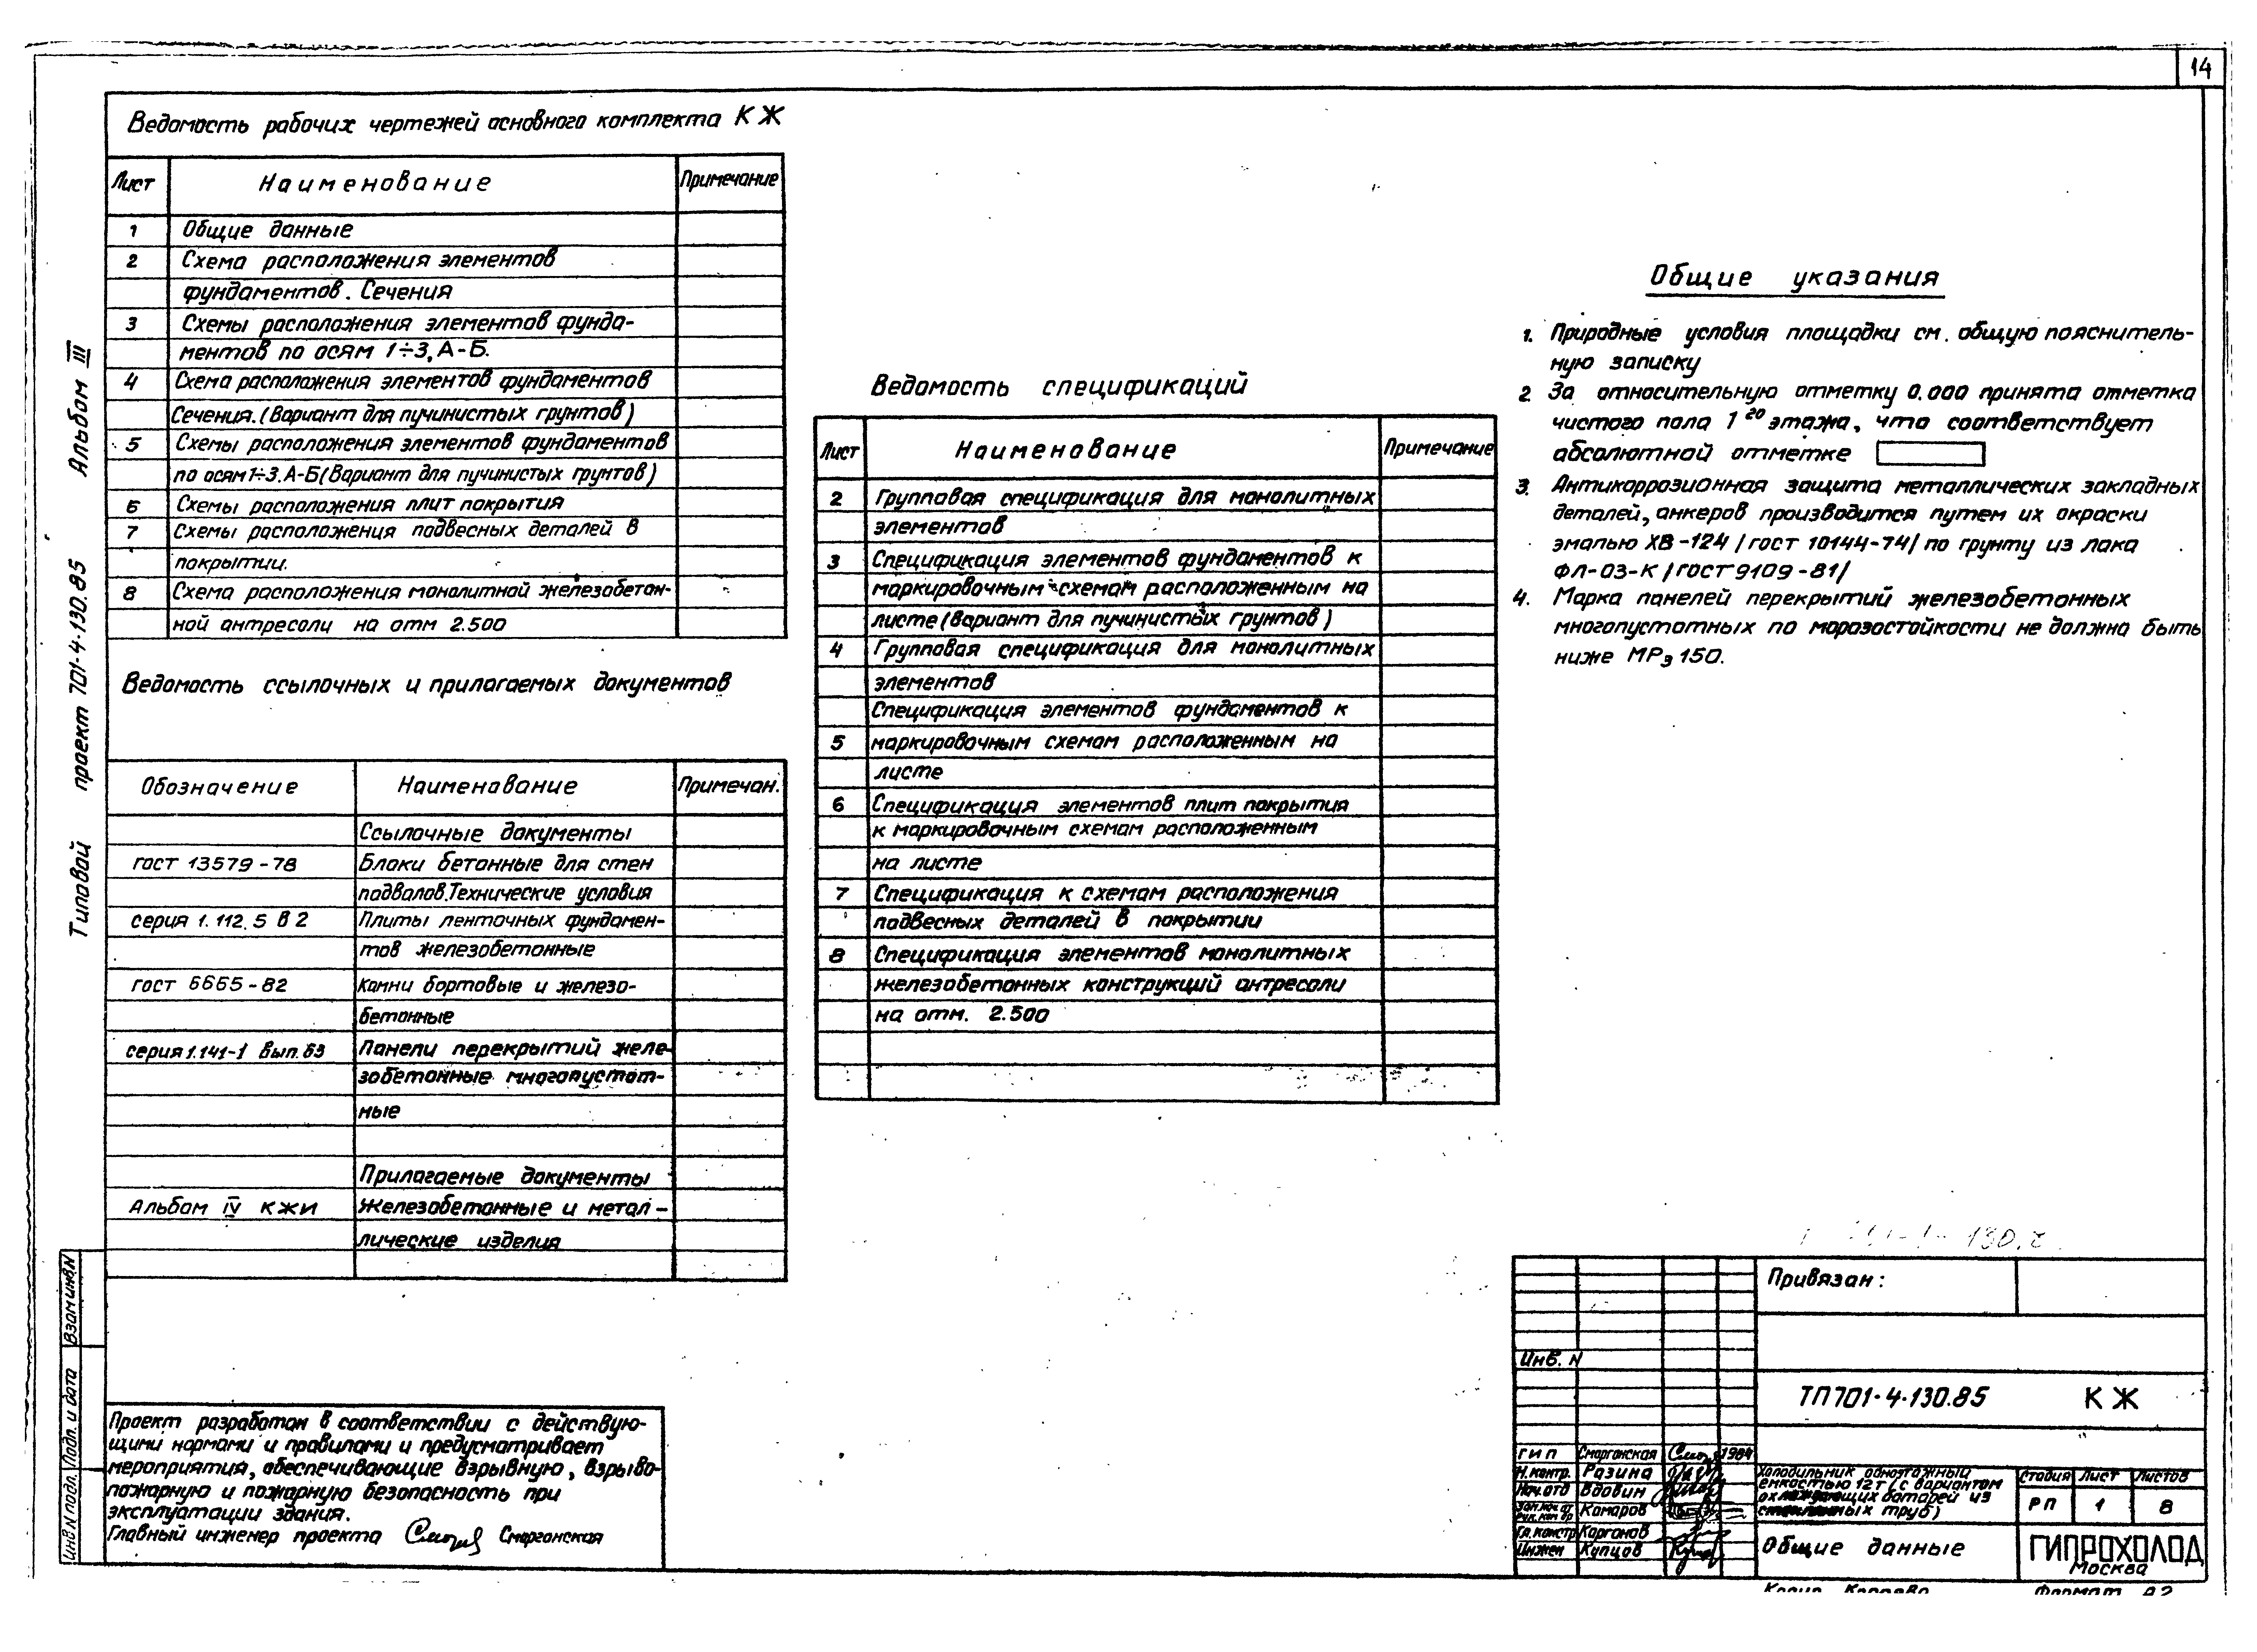 14
Ведомость рабочих чертежей основного комплекта КЖ
Лист Наименование Примечание
1 Общие данные
2 Схема расположения элементов
фундаментов. Сечения
3 Схемы расположения элементов фунда-
ментов по осям 1÷3, А-Б.
4 Схема расположения элементов фундаментов
Сечения. (Вариант для пучинистых грунтов)
5 Схемы расположения элементов фундаментов
по осям 1÷3. А-Б (Вариант для пучинистых грунтов)
6 Схемы расположения плит покрытия
7 Схемы расположения подвесных деталей в
покрытии.
8 Схема расположения монолитной железобетон-
ной антресоли на отм 2.500
Ведомость ссылочных и прилагаемых документов
Обозначение Наименование Примечан.
Ссылочные документы
гост 13579-78 Блоки бетонные для стен
подвалов. Технические условия
серия 1.112.5 в 2 Плиты ленточных фундамен-
тов железобетонные
гост 6665-82 Камни бортовые и железо-
бетонные
серия 1.141-1 вып. 63 Панели перекрытий желе-
зобетонные многопустот-
ные
Прилагаемые документы
Альбом IV КЖИ Железобетонные и метал-
лические изделия
Проект разработан в соответствии с действую-
щими нормами и правилами и предусматривает
мероприятия, обеспечивающие взрывную, взрыво-
пожарную и пожарную безопасность при
эксплуатации здания.
Главный инженер проекта Сморгонская
Ведомость спецификаций
Лист Наименование Примечание
2 Групповая спецификация для монолитных
элементов
3 Спецификация элементов фундаментов к
маркировочным схемам расположенным на
листе (вариант для пучинистых грунтов)
4 Групповая спецификация для монолитных
элементов
Спецификация элементов фундаментов к
5 маркировочным схемам расположенным на
листе
6 Спецификация элементов плит покрытия
к маркировочным схемам расположенным
на листе
7 Спецификация к схемам расположения
подвесных деталей в покрытии
8 Спецификация элементов монолитных
железобетонных конструкций антресоли
на отм. 2.500
Общие указания
1. Природные условия площадки см. общую пояснитель-
ную записку
2. За относительную отметку 0.000 принята отметка
чистого пола 1 го этажа, что соответствует
абсолютной отметке
3. Антикоррозионная защита металлических закладных
деталей, анкеров производится путем их окраски
эмалью ХВ-124 /гост 10144-74/ по грунту из лака
ФЛ-03-К /гост 9109-81/
4. Марка панелей перекрытий железобетонных
многопустотных по морозостойкости не должна быть
ниже МРз 150.
Типовой проект 701-4-130.85 Альбом III
Инв N подл. Подп. и дата Взам инв. N
Привязан:
Инв. N
ТП 701-4-130.85 КЖ
ГИП Сморгонская 1984
Н.контр. Разина
Нач.отд Вдовин
Комаров
Гл.констр Карганов
Инжен Купцов
Холодильник одноэтажный
емкостью 12 т (с вариантом
охлаждающих батарей из
стеклянных труб)
Стадия Лист Листов
РП 1 8
Общие данные
ГИПРОХОЛОД
Москва
Формат А2